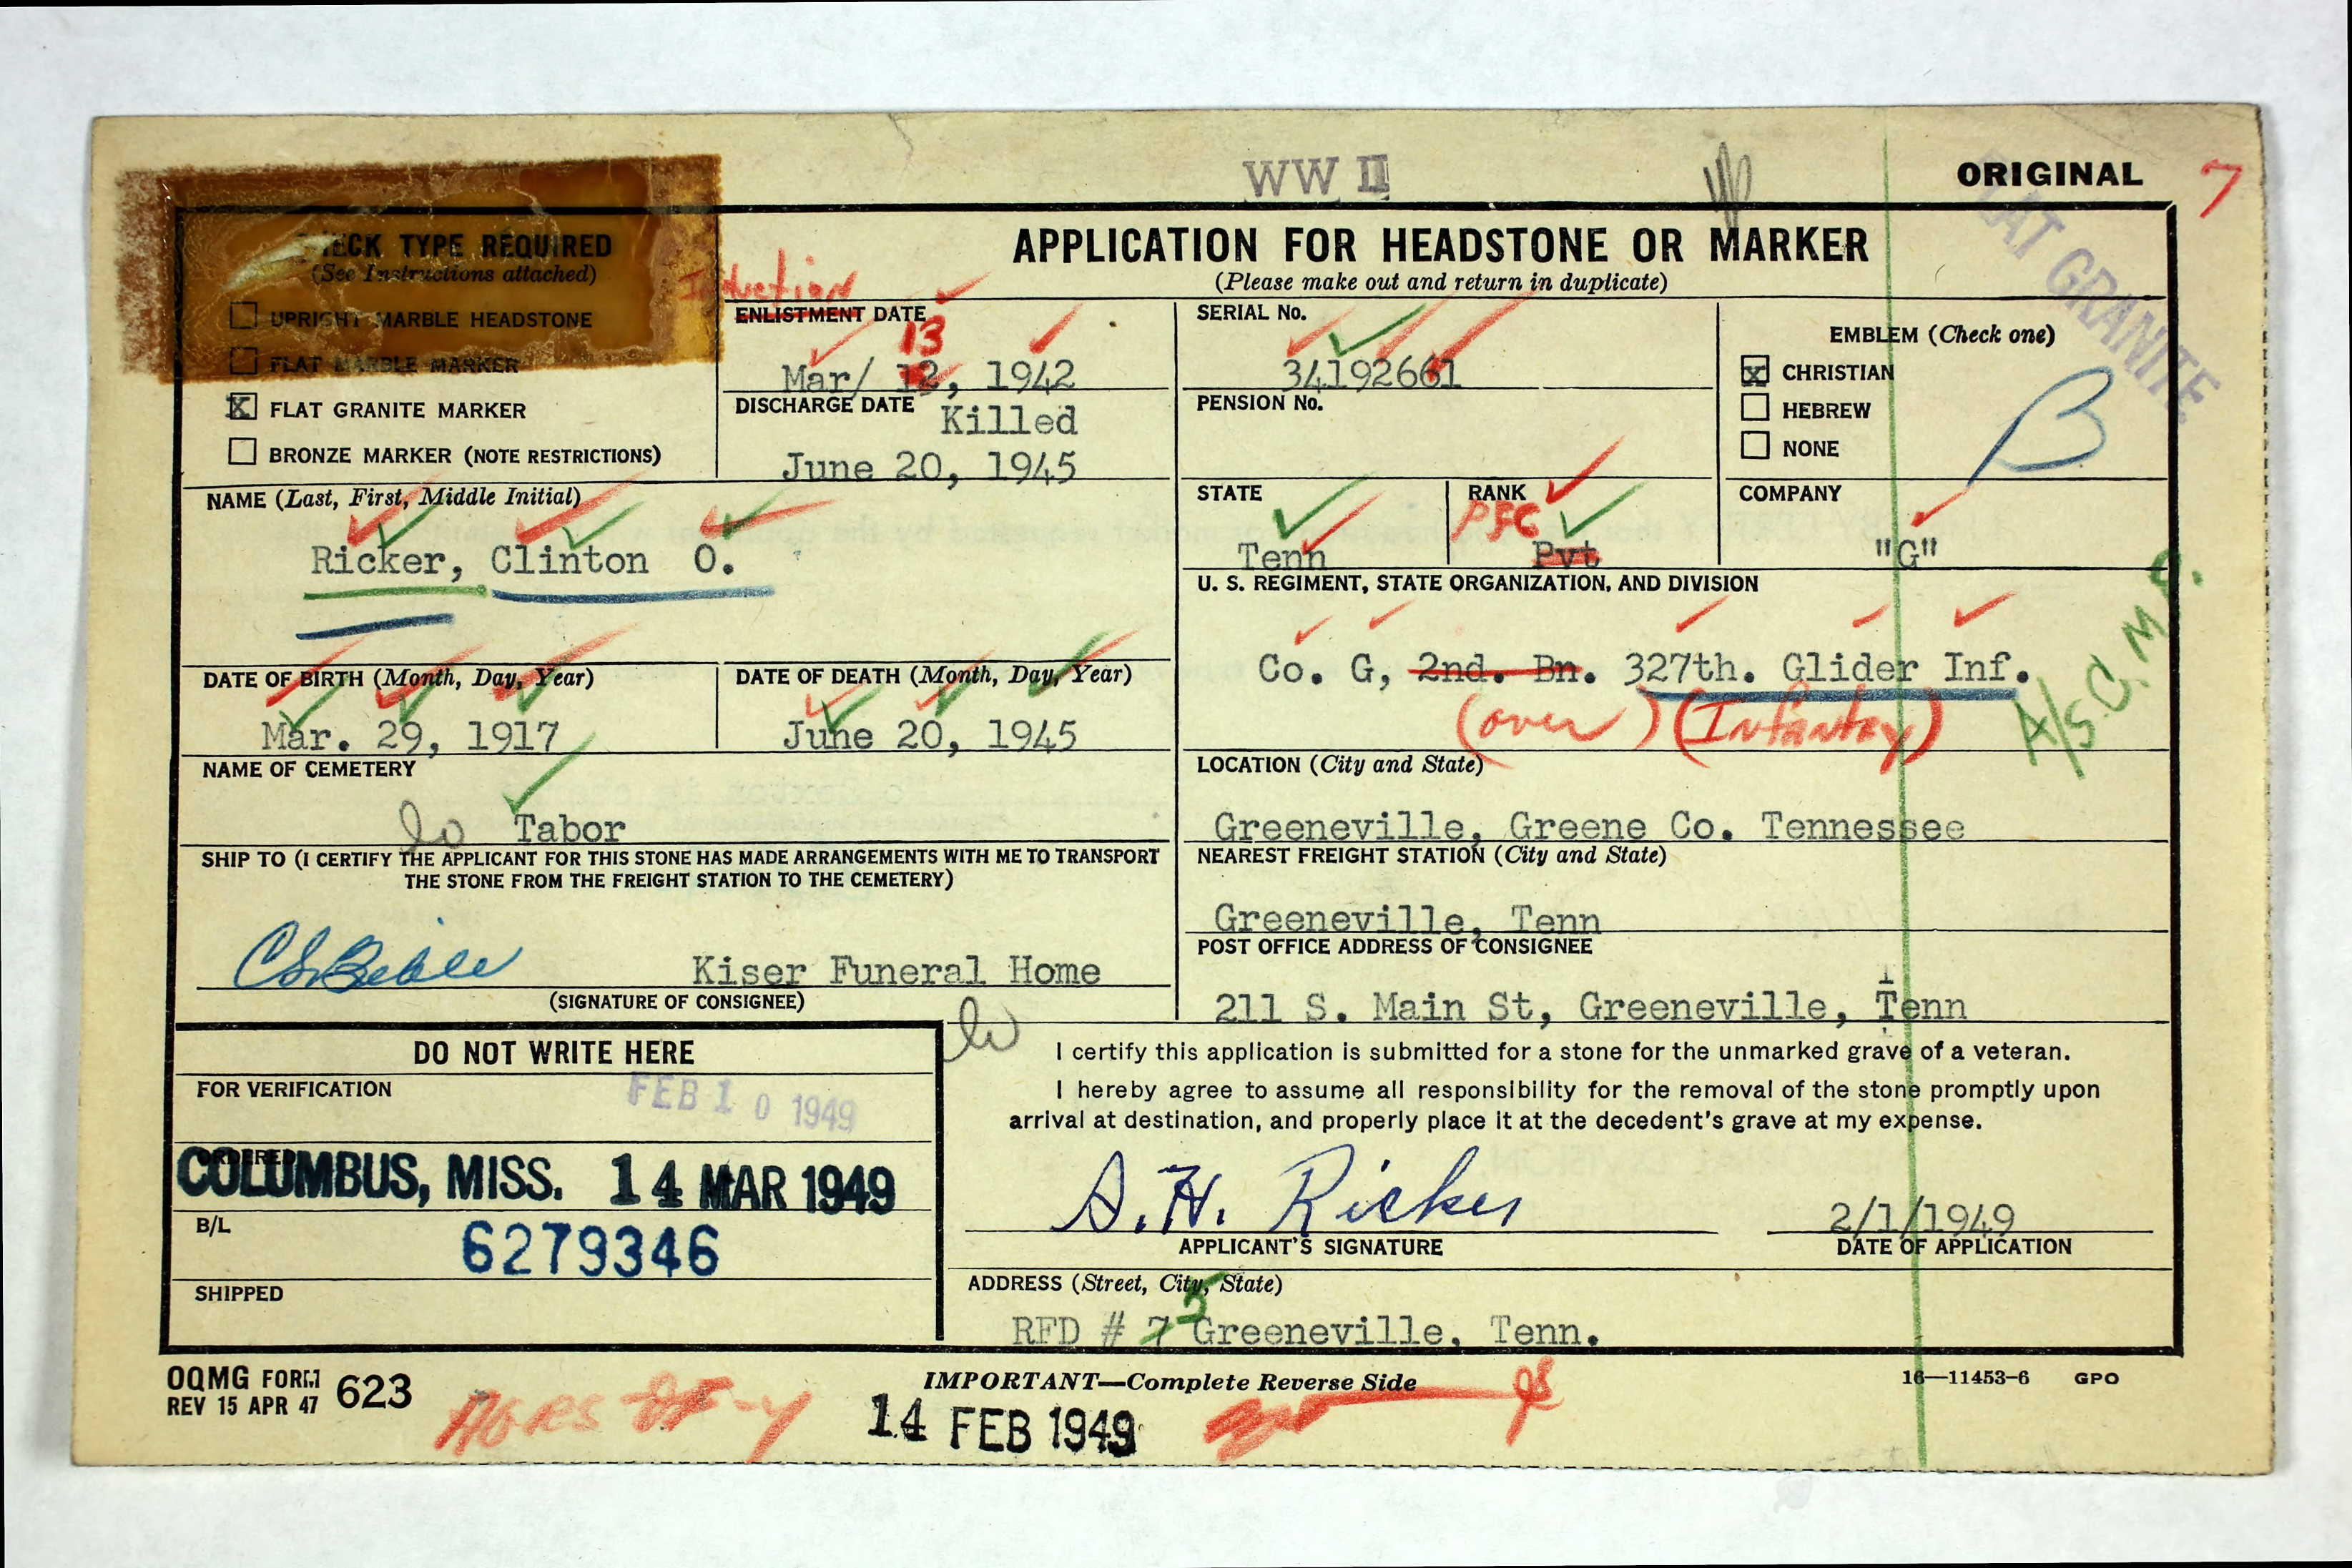 WW II
ORIGINAL
7
FLAT GRANITE
CHECK TYPE REQUIRED
(See Instructions attached)
UPRIGHT MARBLE HEADSTONE
FLAT MARBLE MARKER
X FLAT GRANITE MARKER
BRONZE MARKER (NOTE RESTRICTIONS)
APPLICATION FOR HEADSTONE OR MARKER
(Please make out and return in duplicate)
Induction
ENLISTMENT DATE
13
Mar/ 12, 1942
DISCHARGE DATE
Killed
June 20, 1945
SERIAL No.
34192661
PENSION No.
EMBLEM (Check one)
X CHRISTIAN
HEBREW
NONE
B
NAME (Last, First, Middle Initial)
Ricker, Clinton O.
STATE
Tenn
RANK
PFC
Pvt
COMPANY
"G"
U. S. REGIMENT, STATE ORGANIZATION, AND DIVISION
Co. G, 2nd. Bn. 327th. Glider Inf.
(over) (Infantry)
DATE OF BIRTH (Month, Day, Year)
Mar. 29, 1917
DATE OF DEATH (Month, Day, Year)
June 20, 1945
NAME OF CEMETERY
Tabor
LOCATION (City and State)
Greeneville, Greene Co. Tennessee
SHIP TO (I CERTIFY THE APPLICANT FOR THIS STONE HAS MADE ARRANGEMENTS WITH ME TO TRANSPORT
THE STONE FROM THE FREIGHT STATION TO THE CEMETERY)
NEAREST FREIGHT STATION (City and State)
Greeneville, Tenn
Kiser Funeral Home
(SIGNATURE OF CONSIGNEE)
POST OFFICE ADDRESS OF CONSIGNEE
211 S. Main St, Greeneville, Tenn
DO NOT WRITE HERE
FOR VERIFICATION
FEB 10 1949
ORDERED
COLUMBUS, MISS. 14 MAR 1949
B/L
6279346
SHIPPED
I certify this application is submitted for a stone for the unmarked grave of a veteran.
I hereby agree to assume all responsibility for the removal of the stone promptly upon
arrival at destination, and properly place it at the decedent's grave at my expense.
A. H. Ricker
APPLICANT'S SIGNATURE
2/1/1949
DATE OF APPLICATION
ADDRESS (Street, City, State)
5
RFD # 7 Greeneville, Tenn.
OQMG FORM 623
REV 15 APR 47
IMPORTANT—Complete Reverse Side
14 FEB 1949
16—11453-6 GPO